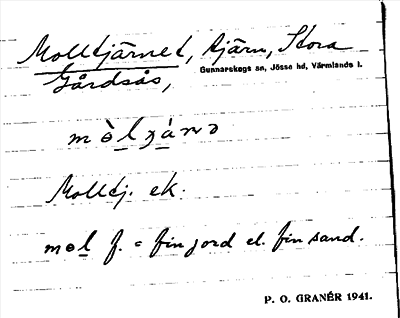 Molltjärnet, tjärn, Stora
Gunnarskogs sn, Jösse hd, Värmlands l.
Gårdsås,
mòlɟänə
Molltj. ek.
mol f. = fin jord el. fin sand.
P. O. GRANÉR 1941.